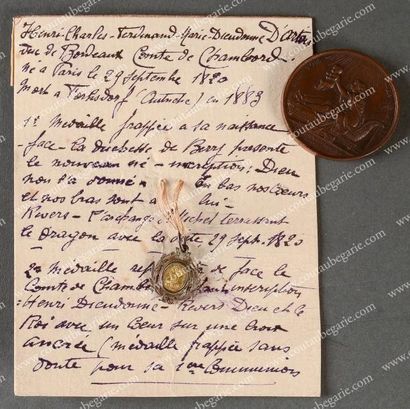 Henri-Charles-Ferdinand-Marie Dieudonné D'Artois
duc de Bordeaux Comte de Chambord.
né à Paris le 29 septembre 1820
Mort à (Autriche) en 1883
1e Médaille frappée à sa naissance
-face- la duchesse de Berry présente
le nouveau né - inscription: Dieu
nous l'a donné - En bas nos Cœurs
et nos bras sont à lui-
Revers - St Michel terrassant
le Dragon avec la date 29 sept. 1820
2e Médaille de face le
Comte de inscription
: Henri Dieudonné - Revers Dieu et le
Roi avec un Cœur sur une Croix
ancrée (médaille frappée sans
doute pour sa 1ère Communion
coutaubegarie.com